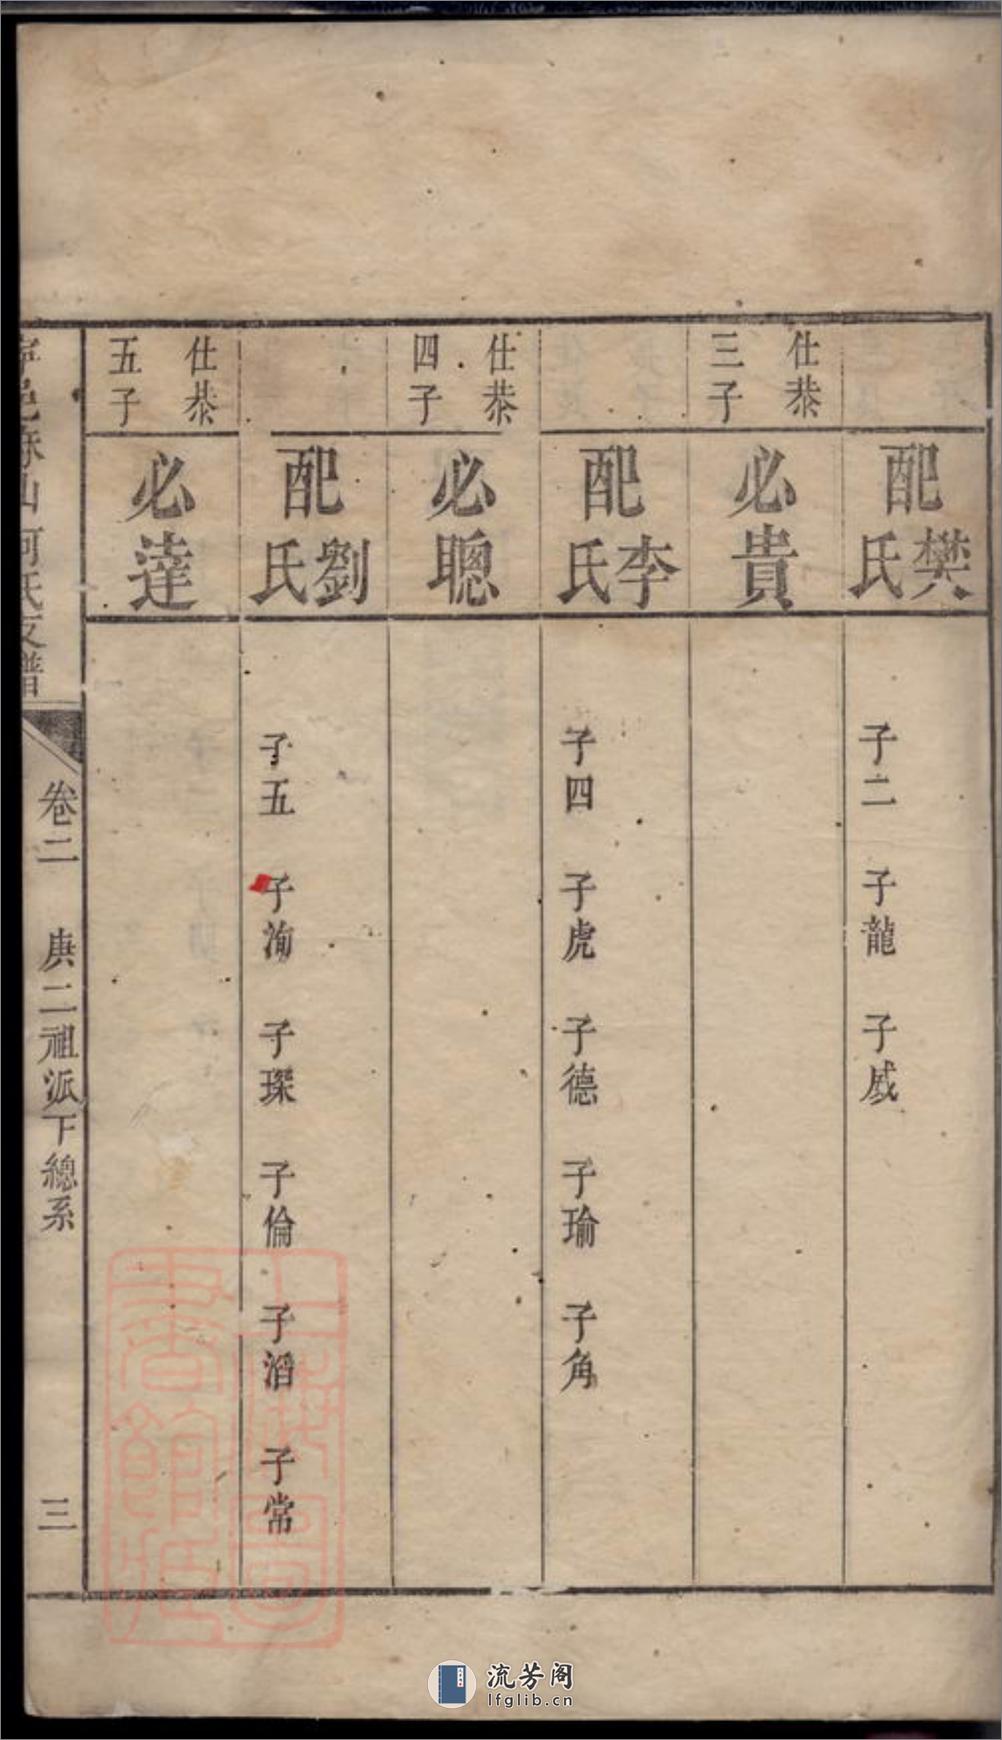 配樊氏
子二 子龍 子威
仕恭三子
必貴
配李氏
子四 子虎 子德 子瑜 子角
仕恭四子
必聰
配劉氏
子五 子洵 子琛 子倫 子滔 子常
仕恭五子
必達
卷二 庚二祖派下總系 三
上海圖書館藏
流芳阁
lfglib.cn